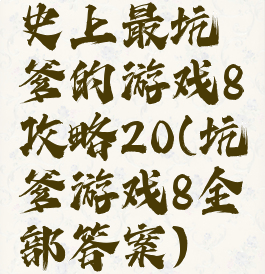 史上最坑
爹的游戏8
攻略20(坑
爹游戏8全
部答案)